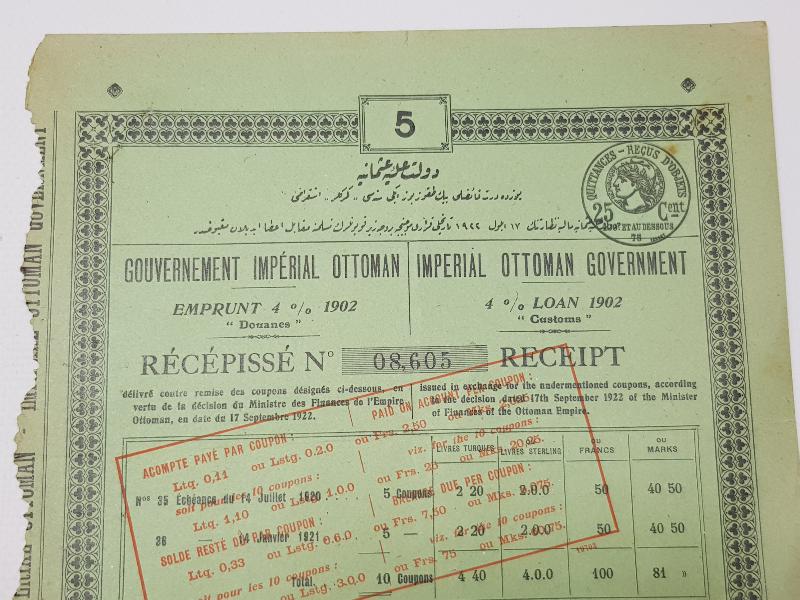 5
دولت علیه عثمانیه
یوزده درت فائضلی بیك طقوز یوز ایكی سنه سی « كومرك » استقراضی
مالیه نظارتنك ١٧ ایلول ١٩٢٢ تاریخلی قراری موجبنجه بروجه زیر قوپونلرك تسلیمنه مقابل اعطا ایدیلان مقبوضدر
QUITTANCES - REÇUS D'OBJETS
25 Cent.
100F ET AU DESSOUS
75
GOUVERNEMENT IMPÉRIAL OTTOMAN
EMPRUNT 4 % 1902
"Douanes"
IMPERIAL OTTOMAN GOVERNMENT
4 % LOAN 1902
"Customs"
RÉCÉPISSÉ No 08,605 RECEIPT
délivré contre remise des coupons désignés ci-dessous, en
vertu de la décision du Ministre des Finances de l'Empire
Ottoman, en date du 17 Septembre 1922.
issued in exchange for the undermentioned coupons, according
to the decision dated 17th September 1922 of the Minister
of Finances of the Ottoman Empire.
LIVRES TURQUES ou LIVRES STERLING ou FRANCS ou MARKS
Nos 35 Echéance du 14 Juillet 1920 5 Coupons 2 20 2.0.0 50 40 50
36 — 14 Janvier 1921 5 — 2 20 2.0.0 50 40 50
Total. 10 Coupons 4 40 4.0.0 100 81 »
ACOMPTE PAYÉ PAR COUPON : PAID ON ACCOUNT PER COUPON :
Ltq. 0,11 ou Lstg. 0.2.0 ou Frs. 2,50
soit pour les 10 coupons : viz. for the 10 coupons :
Ltq. 1,10 ou Lstg. 1.0.0 ou Frs. 25 ou Mks. 20.25.
SOLDE RESTÉ DÛ PAR COUPON : BALANCE DUE PER COUPON :
Ltq. 0,33 ou Lstg. 0.6.0 ou Frs. 7,50 ou Mks. 6.075.
soit pour les 10 coupons : viz. for the 10 coupons :
Lstg. 3.0.0 ou Frs. 75 ou Mks. 60.75.
OTTOMAN GOVERNMENT
OTTOMAN